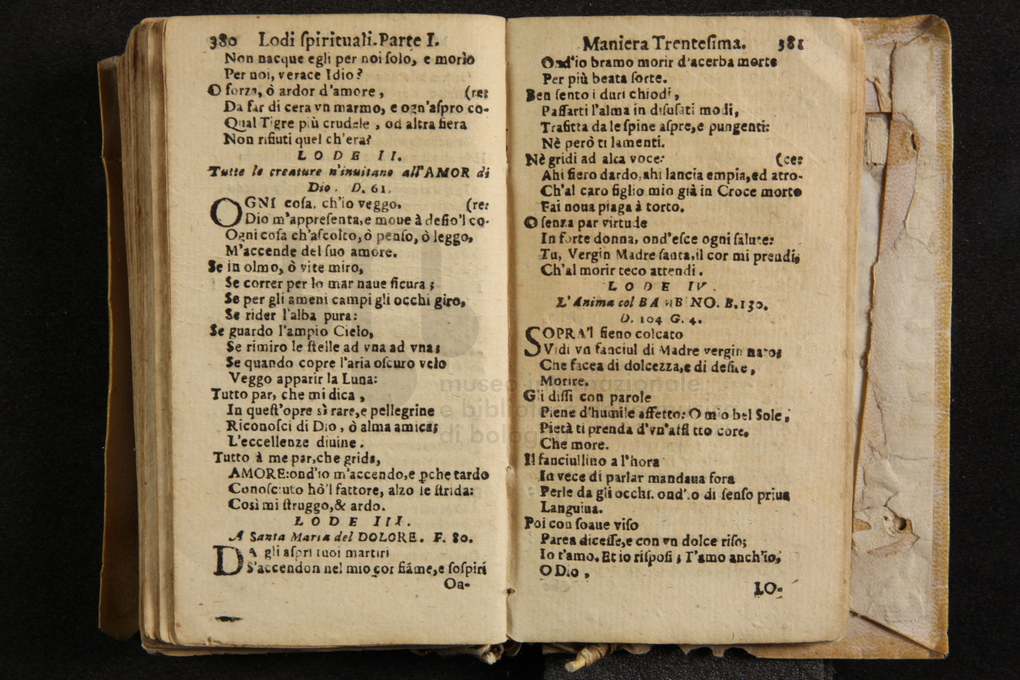 380 Lodi ſpirituali. Parte I.
Non nacque egli per noi ſolo, e morìo
Per noi, verace Idio?
O forza, ò ardor d'amore, (re:
Da far di cera vn marmo, e ogn'aſpro co-
Qual Tigre più crudele, od altra fiera
Non rifiuti quel ch'era?
LODE II.
Tutte le creature n'inuitano all'AMOR di
Dio. D. 61.
OGNI coſa, ch'io veggo, (re:
Dio m'appreſenta, e moue à deſio'l co-
Ogni coſa ch'aſcolto, ò penſo, ò leggo,
M'accende del ſuo amore.
Se in olmo, ò vite miro,
Se correr per lo mar naue ſicura;
Se per gli ameni campi gli occhi giro,
Se rider l'alba pura:
Se guardo l'ampio Cielo,
Se rimiro le ſtelle ad vna ad vna;
Se quando copre l'aria oſcuro velo
Veggo apparir la Luna:
Tutto par, che mi dica,
In queſt'opre sì rare, e pellegrine
Riconoſci di Dio, ò alma amica;
L'eccellenze diuine.
Tutto à me par, che grida,
AMORE: ond'io m'accendo, e ꝑche tardo
Conoſciuto hò'l fattore, alzo le ſtrida:
Così mi ſtruggo, & ardo.
LODE III.
A Santa Maria del DOLORE. F. 80.
DA gli aſpri tuoi martiri
S'accendon nel mio cor fiãme, e ſoſpiri
On-
Maniera Trenteſima. 381
Ond'io bramo morir d'acerba morte
Per più beata ſorte.
Ben ſento i duri chiodi,
Paſſarti l'alma in diſuſati modi,
Trafitta da le ſpine aſpre, e pungenti:
Nè però ti lamenti.
Nè gridi ad alta voce: (ce:
Ahi fiero dardo, ahi lancia empia, ed atro-
Ch'al caro figlio mio già in Croce morto
Fai noua piaga à torto.
O ſenza par virtude
In forte donna, ond'eſce ogni ſalute:
Tu, Vergin Madre ſanta, il cor mi prendi,
Ch'al morir teco attendi.
LODE IV.
L'Anima col BAMBINO. B. 130.
D. 104 G. 4.
SOPRA'l fieno colcato
Vidi vn fanciul di Madre vergin nato;
Che facea di dolcezza, e di deſire,
Morire.
Gli diſſi con parole
Piene d'humile affetto: O mio bel Sole,
Pietà ti prenda d'vn'afflitto core,
Che more.
Il fanciullino a l'hora
In vece di parlar mandaua fora
Perle da gli occhi, ond'io di ſenſo priuo
Languiua.
Poi con ſoaue viſo
Parea diceſſe, e con vn dolce riſo;
Io t'amo. Et io riſpoſi; T'amo anch'io,
O Dio,
LO-
museo internazionale
e biblioteca
di bologna